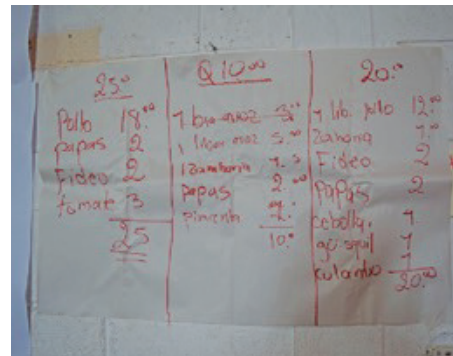 25.00
Pollo 18.00
papas 2
Fideo 2
tomate 3
25
Q 10.00
1 lb arroz 3.00
5.00
1 Zanahoria 1.
papas 2.00
Pimienta
10.00
20.00
1 lib. pollo 12.00
Zanahoria 1.00
Fideo 2
papas 2
cebolla. 1
güisquil 1
culantro 1
20.00